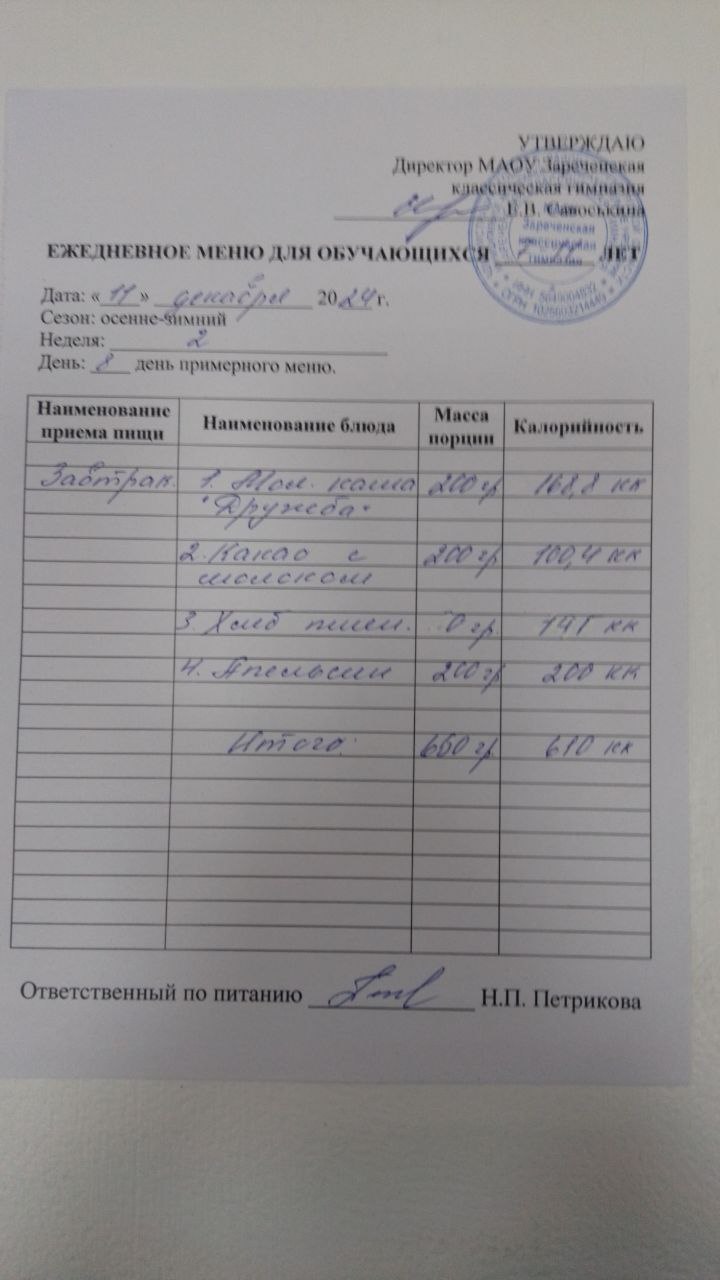 УТВЕРЖДАЮ
Директор МАОУ Зареченская
классическая гимназия
Е.В. Савоськина
Зареченская
классическая
гимназия
ЕЖЕДНЕВНОЕ МЕНЮ ДЛЯ ОБУЧАЮЩИХСЯ ЛЕТ
Дата: « 11 » декабря 2024 г.
Сезон: осенне-зимний
Неделя: 2
День: 8 день примерного меню.
Наименование приема пищи Наименование блюда Масса порции Калорийность
Завтрак. 1. Мол. каша 200 гр 168,8 кк
"Дружба"
2. Какао с 200 гр 100,4 кк
молоком
3. Хлеб пшен. 0 гр 141 кк
4. Апельсин 200 гр 200 кк
Итого: 650 гр 610 кк
Ответственный по питанию Н.П. Петрикова